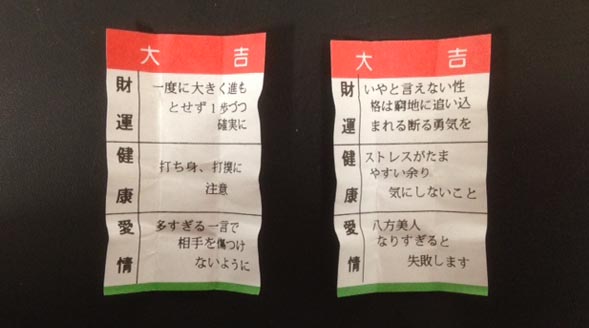 大吉
財運
一度に大きく進も
とせず１歩づつ
確実に
健康
打ち身、打撲に
注意
愛情
多すぎる一言で
相手を傷つけ
ないように
大吉
財運
いやと言えない性
格は窮地に追い込
まれる断る勇気を
健康
ストレスがたま
やすい余り
気にしないこと
愛情
八方美人
なりすぎると
失敗します